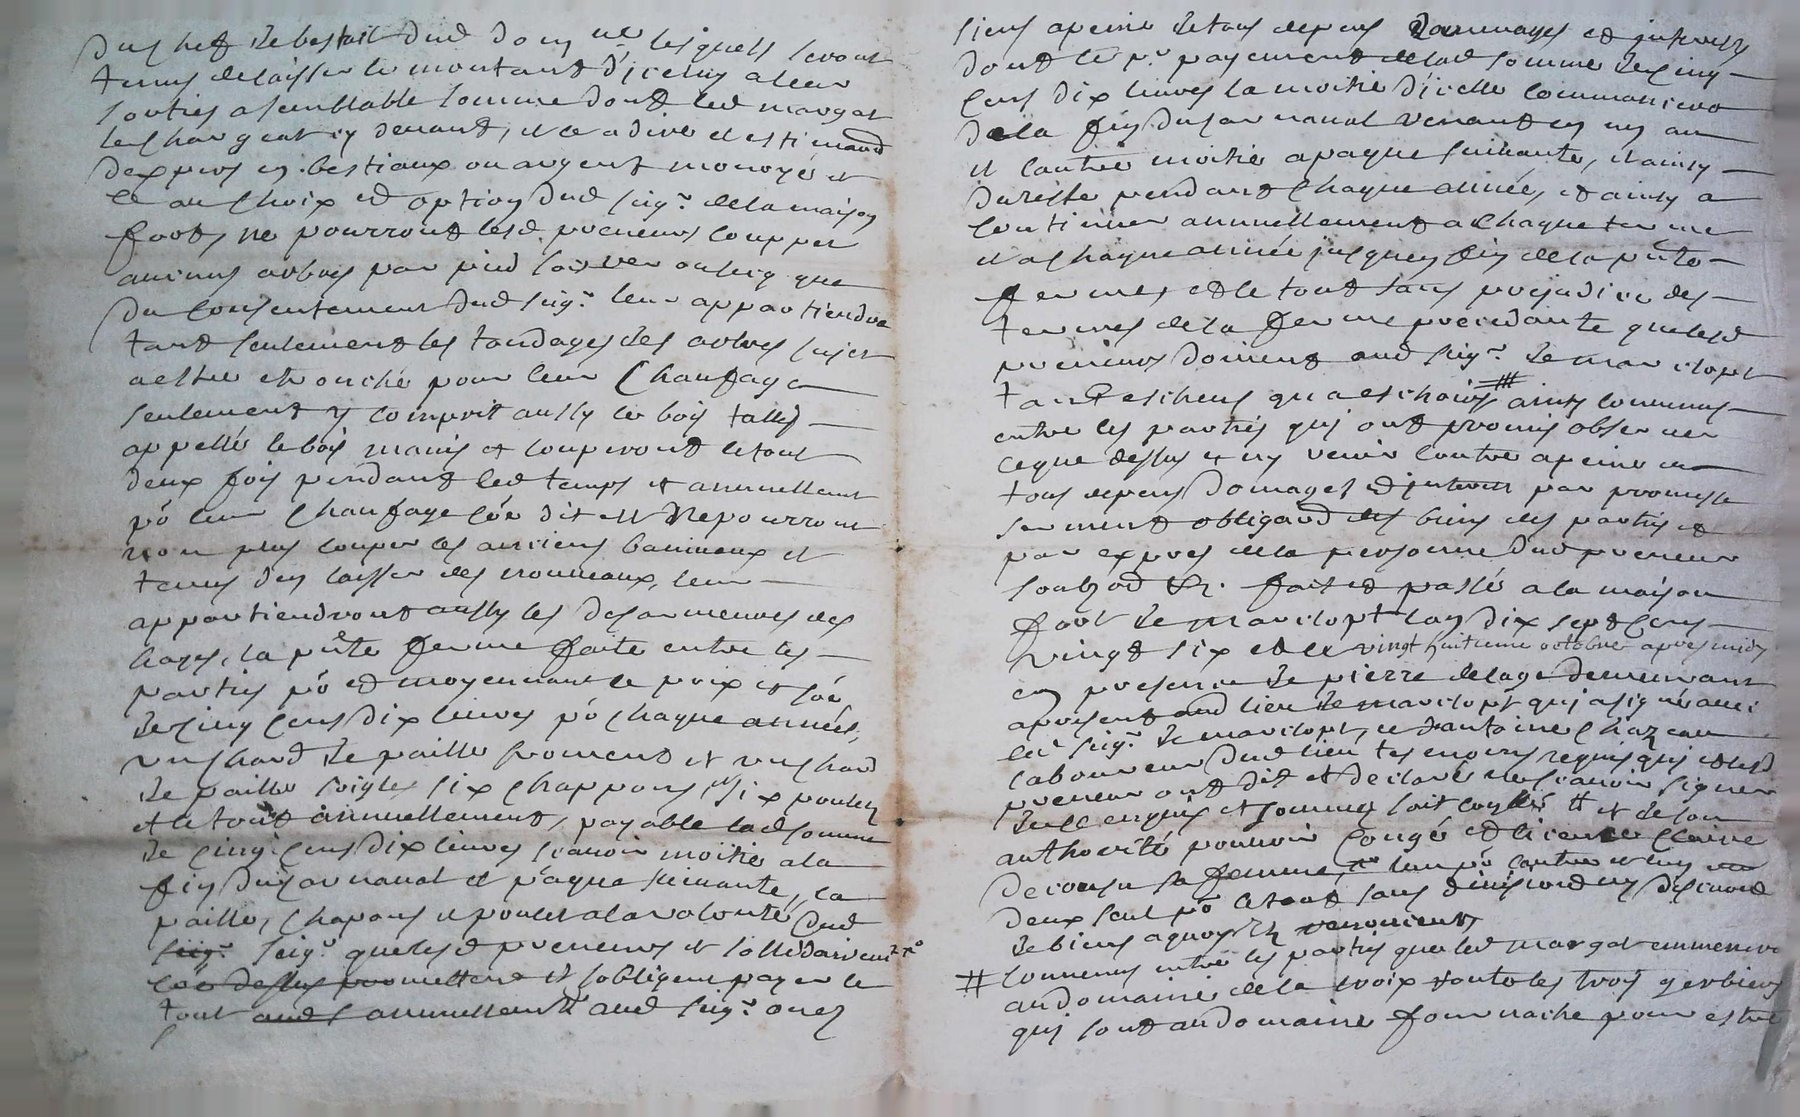 du chef de bestail dud domne lesquels seront
tenus de laisser le montant d'iceluy a leur
sorties a semblable somme dont led margot
se chargeat cy devant, et ce a dire et estimaõn
dexpers en bestiaux ou argent monoyé et
ce au choix et option dud seigr de la maison
fort, ne pourront lesd preneurs coupper
aucuns arbres par pied
du consentement dud seigr leur appartiendra
tant seulement les tondages des arbres sujet
a estre etronché pour leur chaufage
seulement y compris aussy le bois tallis
appellé le bois manis et couperont le tout
deux fois pendant led temps et annuellement
pō leur chaufage coẽ dit est Ne pourront
non plus couper les anciens baliveaux et
tenus d'en laisser des nouveaux, leur
appartiendront aussy les desarmeures des
hayes, la pñte ferme faite entre les
parties pō et moyennant le prix et soẽ
de cinq cens dix livres pō chaque année,
un chard de paille froment et un chard
de paille seigle six chappons six poulets
et le tout annuellement, payable lad somme
de cinq cens dix livres scavoir moitié a la
fin du carnaval et paque suivante, la
paille, chapons et poulet a la volonté dud
seigr que lesd preneurs et sollidairement
coẽ dessus promettent et s'obligent payer le
tout annuellement aud seigr ou es
siens a peine de tous depens dommages et interests
dont le pr payement de lad somme de cinq
cens dix livres la moitié d'icelle commancera
de la fin du carnaval venant en un an
et l'autre moitié a paque suivante, et ainsy
du reste pendant chaque année, et ainsy a
continuer annuellement a chaque terme
et a chaque année jusques en fin de la pñte
ferme, et le tout sans prejudice des
termes de la ferme precedante que lesd
preneurs doivent aud seigr de marclopt
tant escheus qu'a eschoirs ainsy convenus
entre les parties qui ont promis observer
ce que dessus et ny venir contre a peine de
tous depens domages et interests par promesse
serment obligaõn des biens des parties et
par expres de la personne dud preneur
soubz &c. fait et passé a la maison
fort de marclopt l'an dix sept cens
vingt six et le vingt huitieme octobre apres midy
en presence de pierre delage demeurant
apresent aud lieu de marclopt qui a signé avec
led seigr de marclopt, et antoine chazeau
laboureur dud lieu tesmoins requis qui et lesd
preneur ont dit et declaré ne scavoir signer
de ce enquis et sommés soit # et de son
authorité pouvoir congé et licence claire
sa femme, l'un pō l'autre et
deux seul pō le tout sans division
de biens a quoy &c renoncent
# convenus entre les parties que led margot emmenera
au domaine de la croix toutes les trois gerbiers
qui sont au domaine fournache pour estre